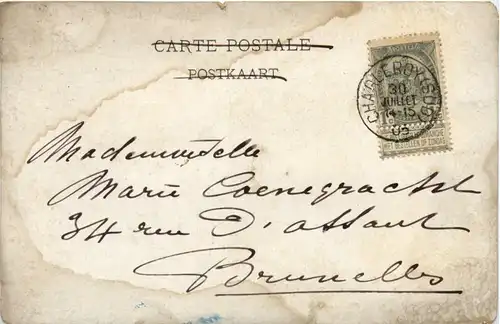 CARTE POSTALE
POSTKAART
CHARLEROY (SUD)
30
JUILLET
15
05
Mademoiselle
Marie Coenegracht
34 rue d'assaut
Bruxelles